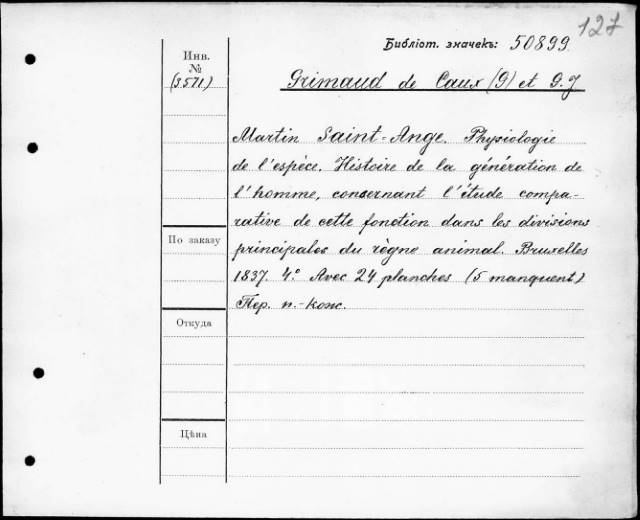 127
Библіот. значекъ: 50899
Инв.
№
(3571)
Grimaud de Caux (G) et G. J
Martin Saint-Ange. Physiologie
de l'espèce. Histoire de la génération de
l'homme, consernant l'étude compa-
rative de cette fonction dans les divisions
principales du règne animal. Bruxelles
1837. 4º. Avec 24 planches (5 manquent)
Пер. п.-кож.
По заказу
Откуда
Цѣна